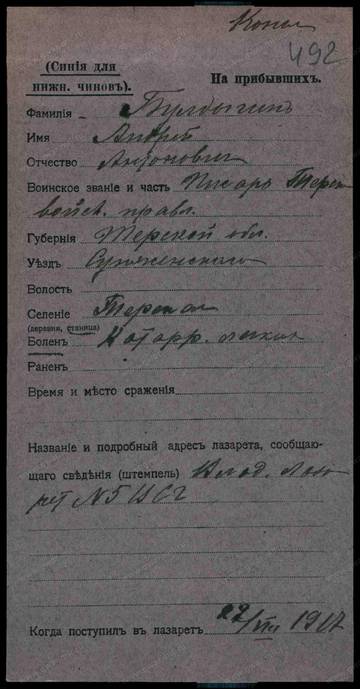 Копия
492
(Синія для
нижн. чиновъ).
На прибывшихъ.
Фамилія Булдыгинъ
Имя Андрей
Отчество Антоновичъ
Воинское званіе и часть Писарь Терск
войск. правл.
Губернія Терской обл.
Уѣздъ Сунженскаго
Волость
Селеніе Терская
(деревня, станица)
Боленъ Катарр. легких
Раненъ
Время и мѣсто сраженія
Названіе и подробный адресъ лазарета, сообщаю-
щаго свѣдѣнія (штемпель) Влад. Лаза
рет №5 ВСГ
Когда поступилъ въ лазаретъ 22/VIII 1917